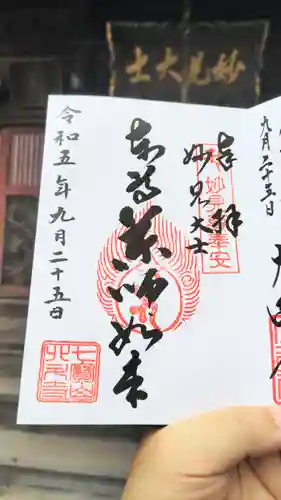 妙見大士
九月二十五日
奉拝
妙見大士
本尊薬師如来
令和五年九月二十五日
七寶山